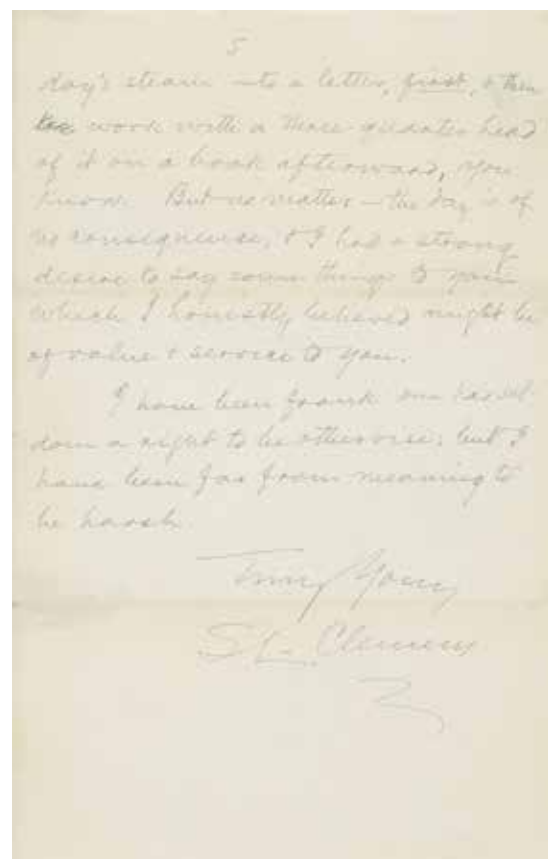 5
day's steam — to a letter, first, & then
work with a three-quarter head
of it on a book afterward, you
know. But no matter — the day is of
no consequence, & I had a strong
desire to say some things to you
which I honestly believed might be
of value & service to you.
I have been frank one has sel-
dom a right to be otherwise; but I
have been far from meaning to
be harsh.
Truly Yours
S L. Clemens